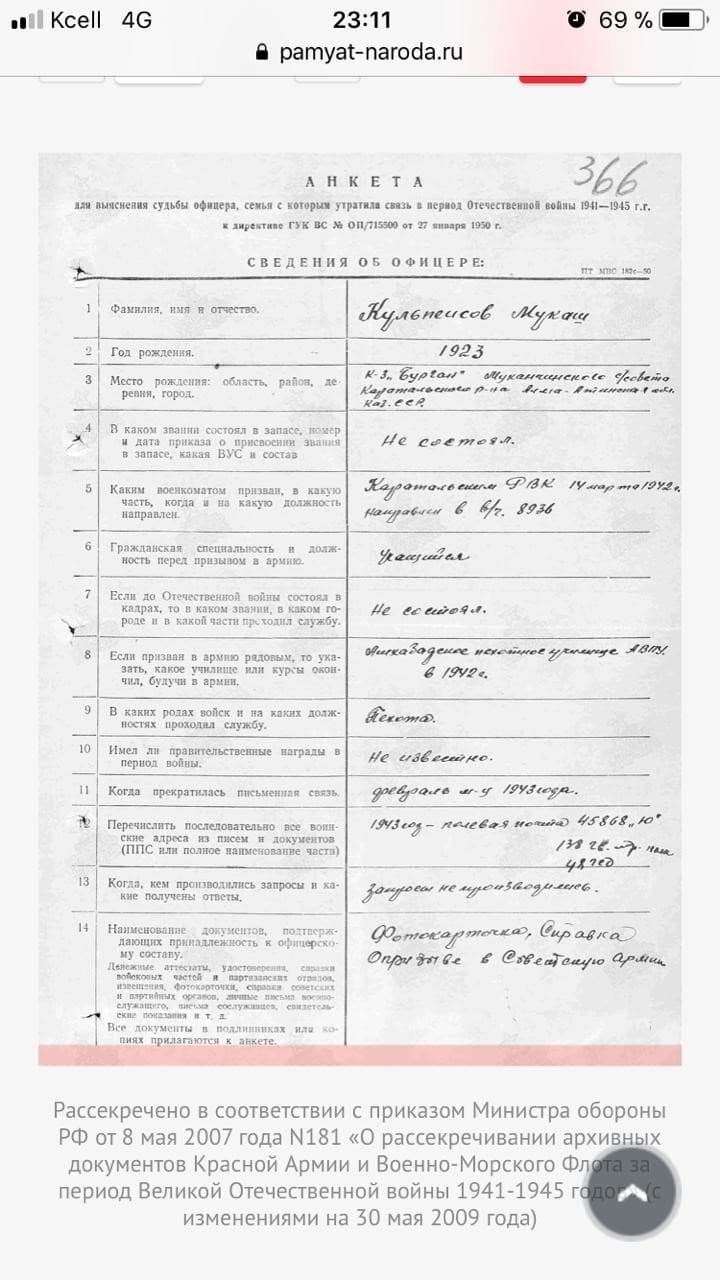 Kcell 4G 23:11 69 %
pamyat-naroda.ru
366
АНКЕТА
для выяснения судьбы офицера, семья с которым утратила связь в период Отечественной войны 1941—1945 г.г.
к директиве ГУК ВС № ОП/715500 от 27 января 1950 г.
СВЕДЕНИЯ ОБ ОФИЦЕРЕ:
ПТ МВС 182с—50
1 Фамилия, имя и отчество. Кульпеисов Мукаш
2 Год рождения. 1923
3 Место рождения: область, район, де- К-З „Бурган" Муканчинского с/совета
ревня, город. Каратальского р-на Алма-Атинская обл.
Каз. ССР.
4 В каком звании состоял в запасе, номер
и дата приказа о присвоении звания Не состоял.
в запасе, какая ВУС и состав
5 Каким военкоматом призван, в какую Каратальским РВК 14 марта 1942г.
часть, когда и на какую должность
направлен. направлен в в/ч. 8936
6 Гражданская специальность и долж-
ность перед призывом в армию. Учащийся
7 Если до Отечественной войны состоял в
кадрах, то в каком звании, в каком го- Не состоял.
роде и в какой части проходил службу.
8 Если призван в армию рядовым, то ука- Ашхабадское пехотное училище АВПУ.
зать, какое училище или курсы окон- в 1942г.
чил, будучи в армии.
9 В каких родах войск и на каких долж- Пехота.
ностях проходил службу.
10 Имел ли правительственные награды в Не известно.
период войны.
11 Когда прекратилась письменная связь. февраль м-ц 1943 года.
12 Перечислить последовательно все воин- 1943 год – полевая почта 45868 „Ю"
ские адреса из писем и документов 138 гв. стр. полк
(ППС или полное наименование части) 48 гсд
13 Когда, кем производились запросы и ка- Запросы не производились.
кие получены ответы.
14 Наименование документов, подтверж- Фотокарточка, Справка
дающих принадлежность к офицерско- О призыве в Советскую Армию
му составу.
Денежные аттестаты, удостоверения, справки
войсковых частей и партизанских отрядов,
извещения, фотокарточки, справки советских
и партийных органов, личные письма военно-
служащего, письма сослуживцев, свидетель-
ские показания и т. д.
Все документы в подлинниках или ко-
пиях прилагаются к анкете.
Рассекречено в соответствии с приказом Министра обороны
РФ от 8 мая 2007 года N181 «О рассекречивании архивных
документов Красной Армии и Военно-Морского Флота за
период Великой Отечественной войны 1941-1945 годов» (с
изменениями на 30 мая 2009 года)